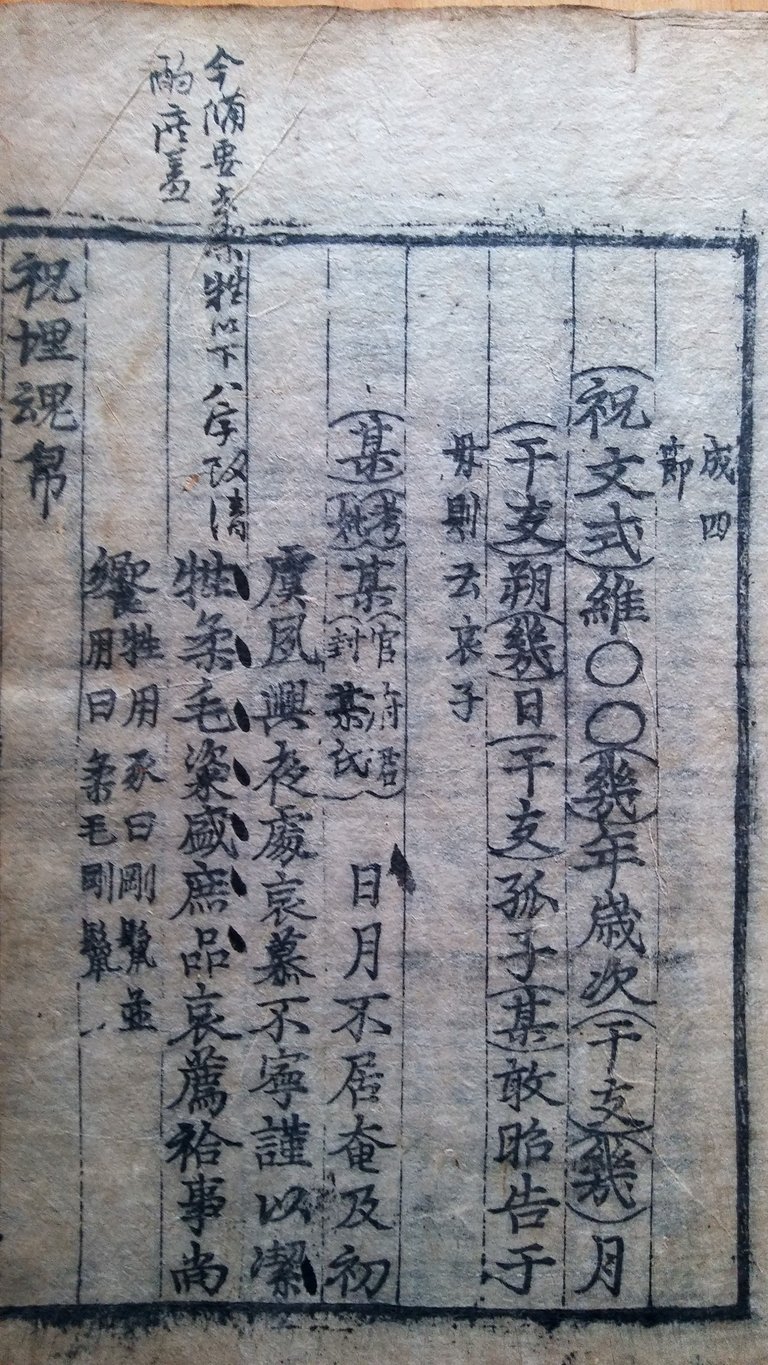 成四
節
(祝文式)維〇〇(幾)年歲次(干支)(幾)月
(干支)朔(幾)日(干支)孤子(某)敢昭告于
母則云哀子
(某)(考
妣)某(官府君
(封某氏)
日月不居奄及初
虞夙興夜處哀慕不寧謹以潔
牲柔毛粢盛庶品哀薦祫事尚
饗牲用豕曰剛鬣並
用曰柔毛剛鬣
今備要潔牲以下八字改清
酌庶羞
祝埋魂帛